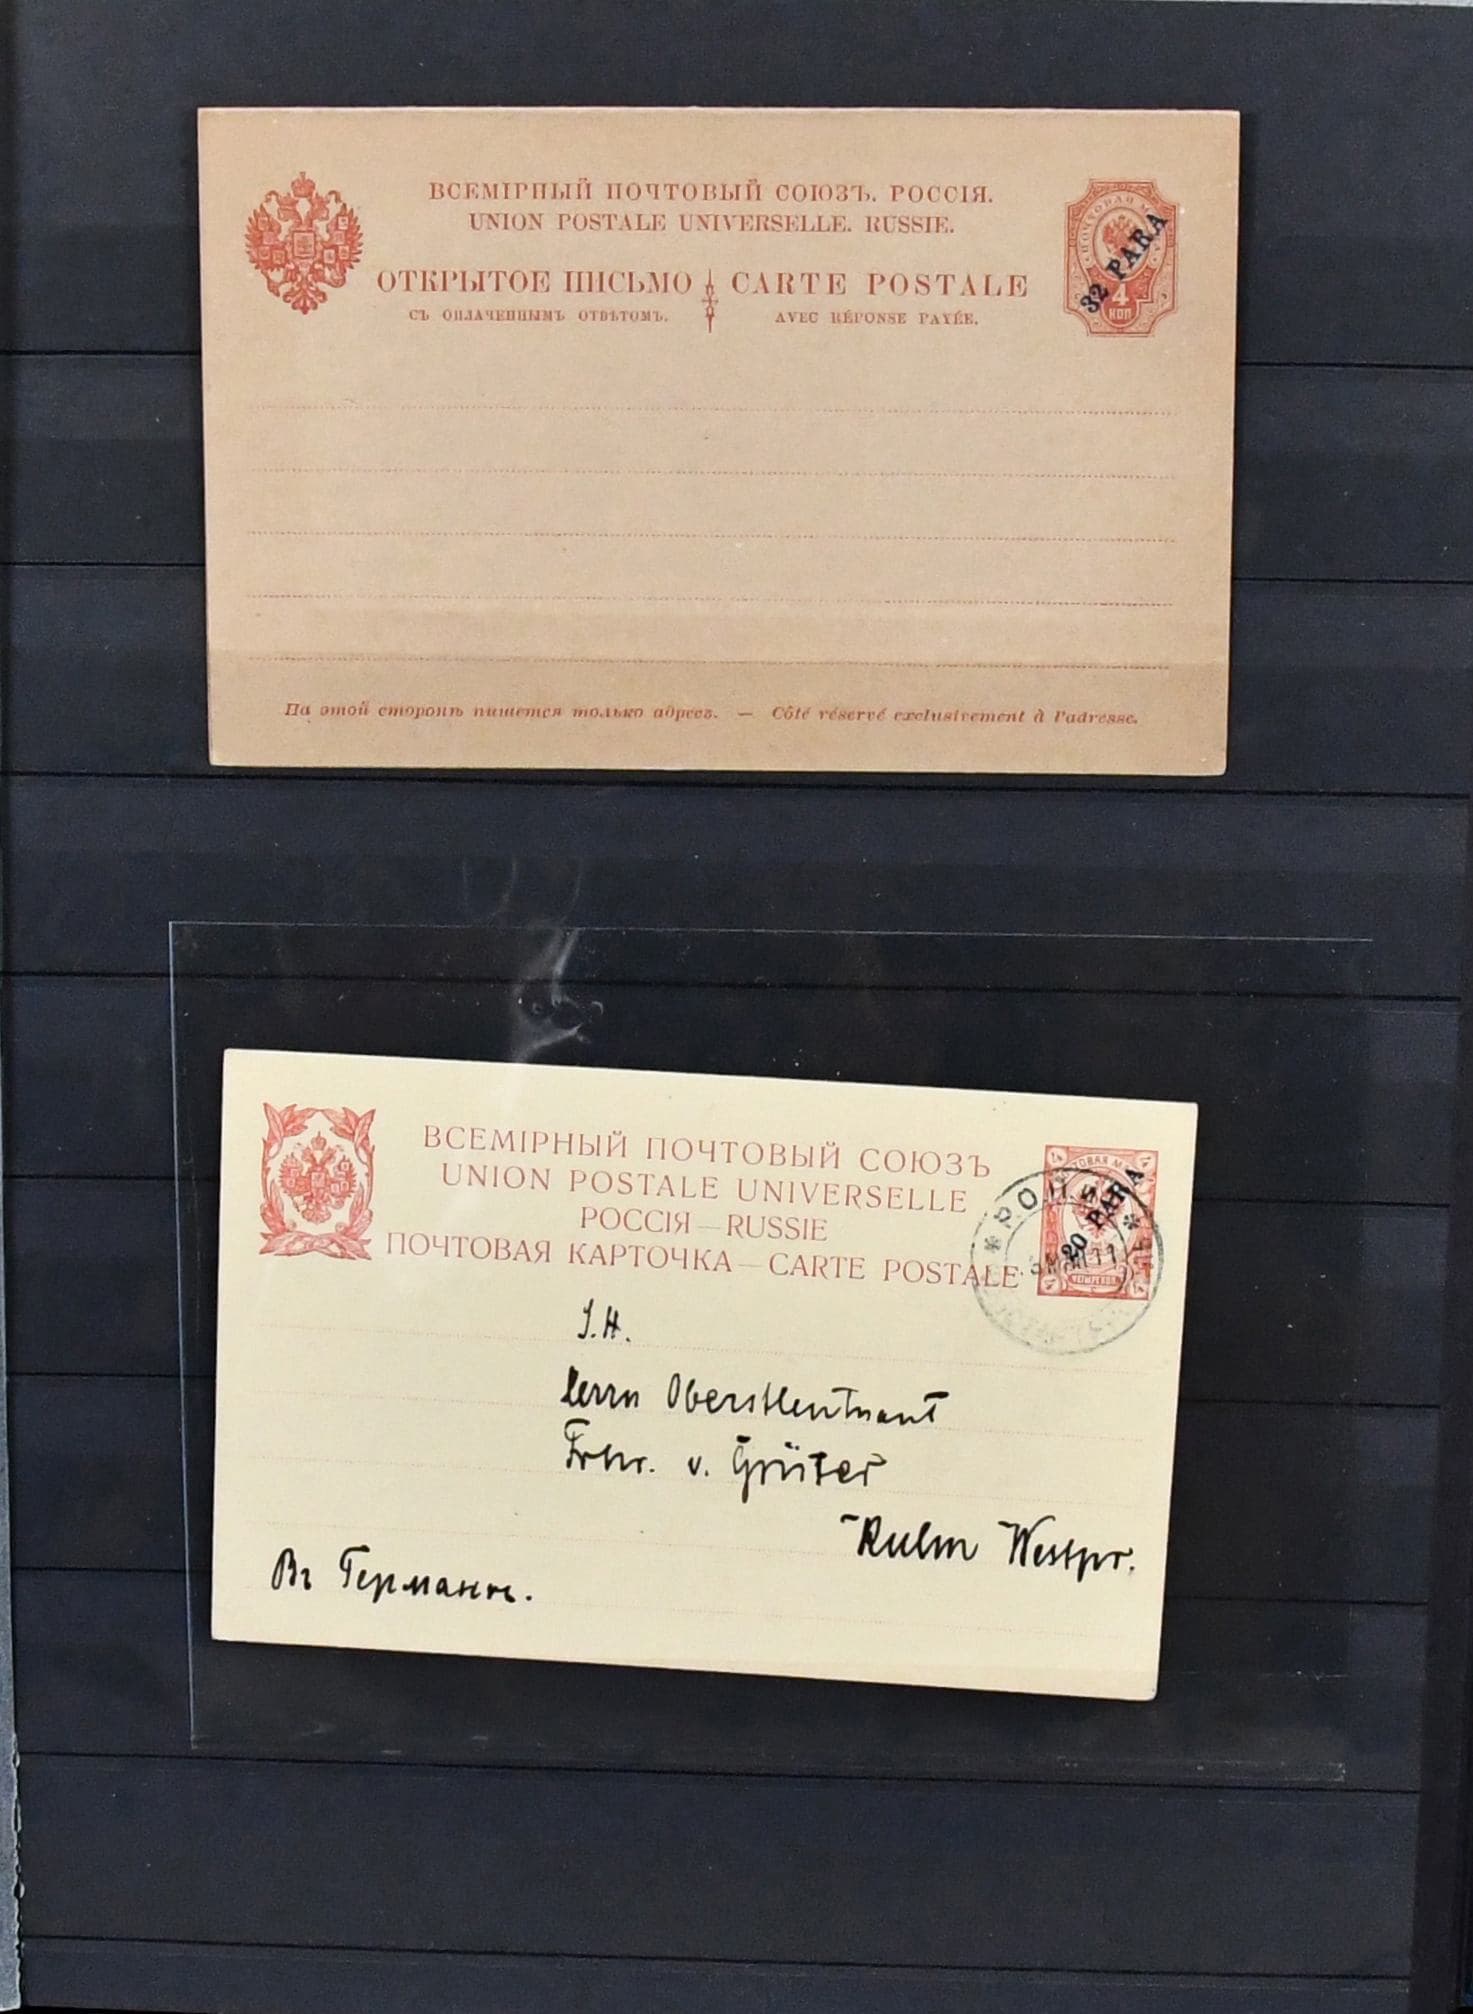 ВСЕМІРНЫЙ ПОЧТОВЫЙ СОЮЗЪ. РОССІЯ.
UNION POSTALE UNIVERSELLE. RUSSIE.
ОТКРЫТОЕ ПИСЬМО CARTE POSTALE
СЪ ОПЛАЧЕННЫМЪ ОТВѢТОМЪ. AVEC RÉPONSE PAYÉE.
ПОЧТОВАЯ
32 PARA
4
КОП
На этой сторонѣ пишется только адресъ. — Côté réservé exclusivement à l'adresse.
ВСЕМІРНЫЙ ПОЧТОВЫЙ СОЮЗЪ
UNION POSTALE UNIVERSELLE
РОССІЯ — RUSSIE
ПОЧТОВАЯ КАРТОЧКА — CARTE POSTALE
20 PARA
S.H.
Herrn Oberstleutnant
Frhr. v. Grüter
Kulm Westpr.
Въ Германію.